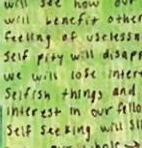 will see how our
will benefit other
feeling of uselessn
Self pity will disapp
we will lose inter
Selfish things and
interest in our fello
Self Seeking will Sli
whole